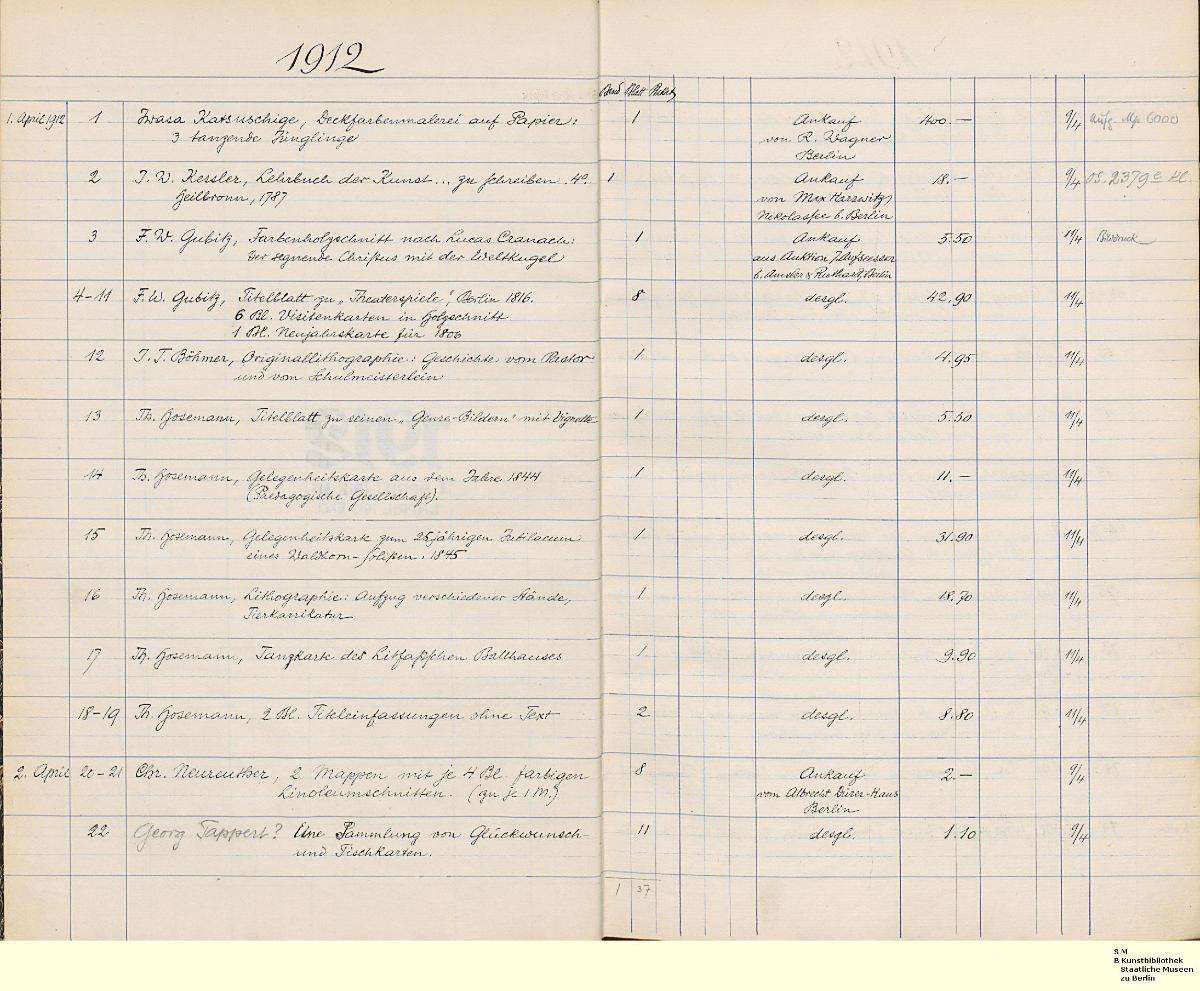 1912
Band Blatt Pakete
1. April 1912 1 Iwasa Katsuschige, Deckfarbenmalerei auf Papier: 1 Ankauf 400.— 9/4 Aufg. Mp 6000
3 tanzende Jünglinge von R. Wagner
Berlin
2 J. W. Kessler, Lehrbuch der Kunst... zu schreiben. 4o. 1 Ankauf 18.— 9/4 OS. 2379 e kl.
Heilbronn, 1787 von Max Harrwitz,
Nikolassee b. Berlin
3 F. W. Gubitz, Farbenholzschnitt nach Lucas Cranach: 1 Ankauf 5.50 11/4 Bilddruck
Der segnende Christus mit der Weltkugel aus Auktion
b. Amsler & Ruthardt, Berlin
4-11 F. W. Gubitz, Titelblatt zu „Theaterspiele", Berlin 1816. 8 desgl. 42.90 11/4
6 Bl. Visitenkarten in Holzschnitt
1 Bl. Neujahrskarte für 1806
12 J. J. Böhmer, Originallithographie: Geschichte vom Pastor 1 desgl. 4.95 11/4
und vom Schulmeisterlein
13 Th. Hosemann, Titelblatt zu seinen „Genre-Bildern" mit Vignette 1 desgl. 5.50 11/4
14 Th. Hosemann, Gelegenheitskarte aus dem Jahre 1844 1 desgl. 11.— 11/4
(Paedagogische Gesellschaft).
15 Th. Hosemann, Gelegenheitskarte zum 25jährigen Jubilaeum 1 desgl. 31.90 11/4
eines Waldhorn-solisten. 1845
16 Th. Hosemann, Lithographie: Aufzug verschiedener Stände, 1 desgl. 18.70 11/4
Tierkarrikatur
17 Th. Hosemann, Tanzkarte des Litfaßschen Ballhauses 1 desgl. 9.90 11/4
18-19 Th. Hosemann, 2 Bl. Titeleinfassungen ohne Text 2 desgl. 8.80 11/4
2. April 20-21 Chr. Neureuther, 2 Mappen mit je 4 Bl. farbigen 8 Ankauf 2.— 9/4
Linoleumschnitten. (zu je 1 M.) vom Albrecht Dürer-Haus
Berlin
22 Georg Tappert? Eine Sammlung von Glückwunsch- 11 desgl. 1.10 9/4
und Tischkarten.
1 37
S M
B Kunstbibliothek
Staatliche Museen
zu Berlin